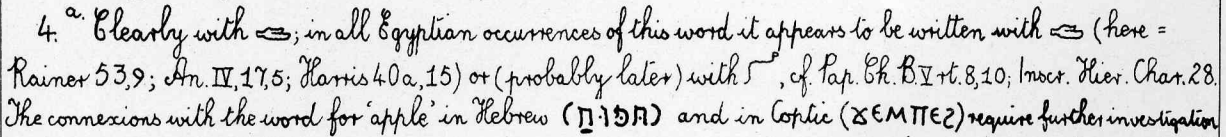 4.ᵃ· Clearly with 𓂧; in all Egyptian occurrences of this word it appears to be written with 𓂧 (here =
Rainer 53,9; An. IV,17,5; Harris 40a,15) or (probably later) with 𓆓, cf. Pap. Ch. B.V rt. 8,10; Inscr. Hier. Char. 28.
The connexions with the word for 'apple' in Hebrew (תפוח) and in Coptic (ϪⲈⲘⲠⲈϨ) require further investigation